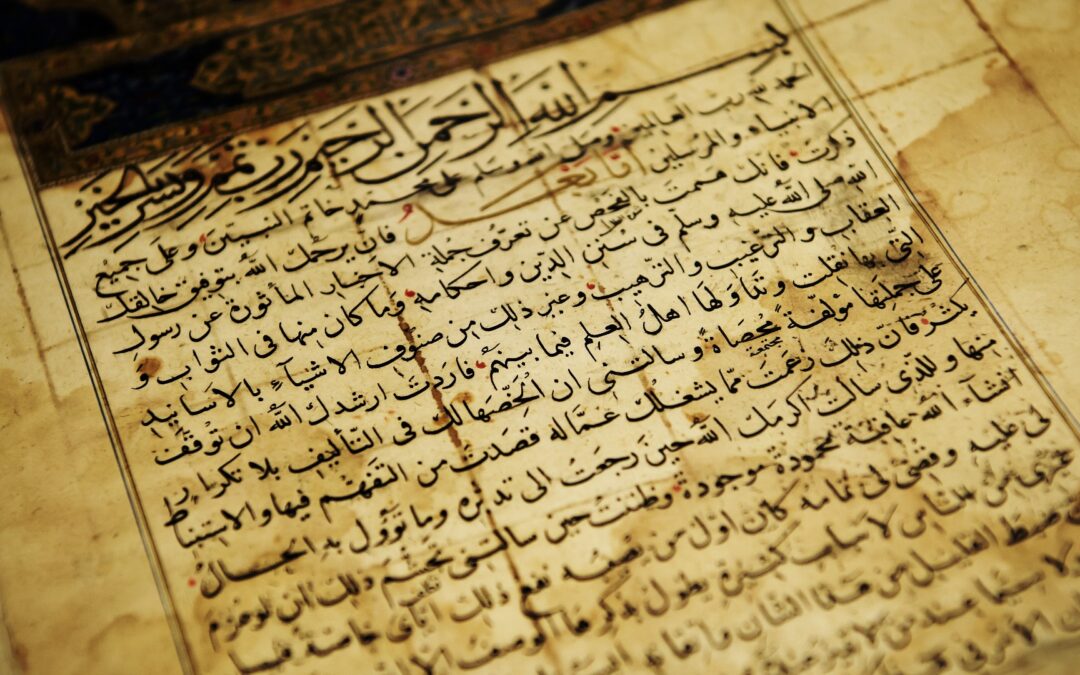 بسم الله الرحمن الرحيم رب تمم ويسر
الحمد لله رب العالمين وصلى الله وسلم على محمد خاتم النبيين وعلى جميع
الانبياء والمرسلين اما بعد فان يرحمك الله بتوفيق خالقك
ذكرت فانك هممت بالفحص عن تعرف جملة الاخبار المأثورة عن رسول
الله صلى الله عليه وسلم في سنن الدين واحكامه وما كان منها في الثواب و
العقاب والترغيب والترهيب وغير ذلك من صنوف الاشياء بالاسانيد
التي بها نقلت وتداولها اهل العلم فيما بينهم فاردت ارشدك الله ان توقف
على جملتها مؤلفة محصاة وسالتني ان الخصها لك في التأليف بلا تكرار
يكثر فان ذلك زعمت مما يشغلك عما له قصدت من التفهم فيها والاستنباط
منها وللذي سالت اكرمك الله حين رجعت الى تدبره وما تؤول به الحال
انشاء الله عاقبة محمودة موجودة وظننت حين سالتني تجشم ذلك ان لو عزم
لي عليه وقضي لي تمامه كان اول من يصيبه نفع ذلك اياي خاصة
غيري من الناس لاسباب كثيرة يطول بذكرها الوصف
ضبط القليل من هذا الشان
ولا سيما عند من لا